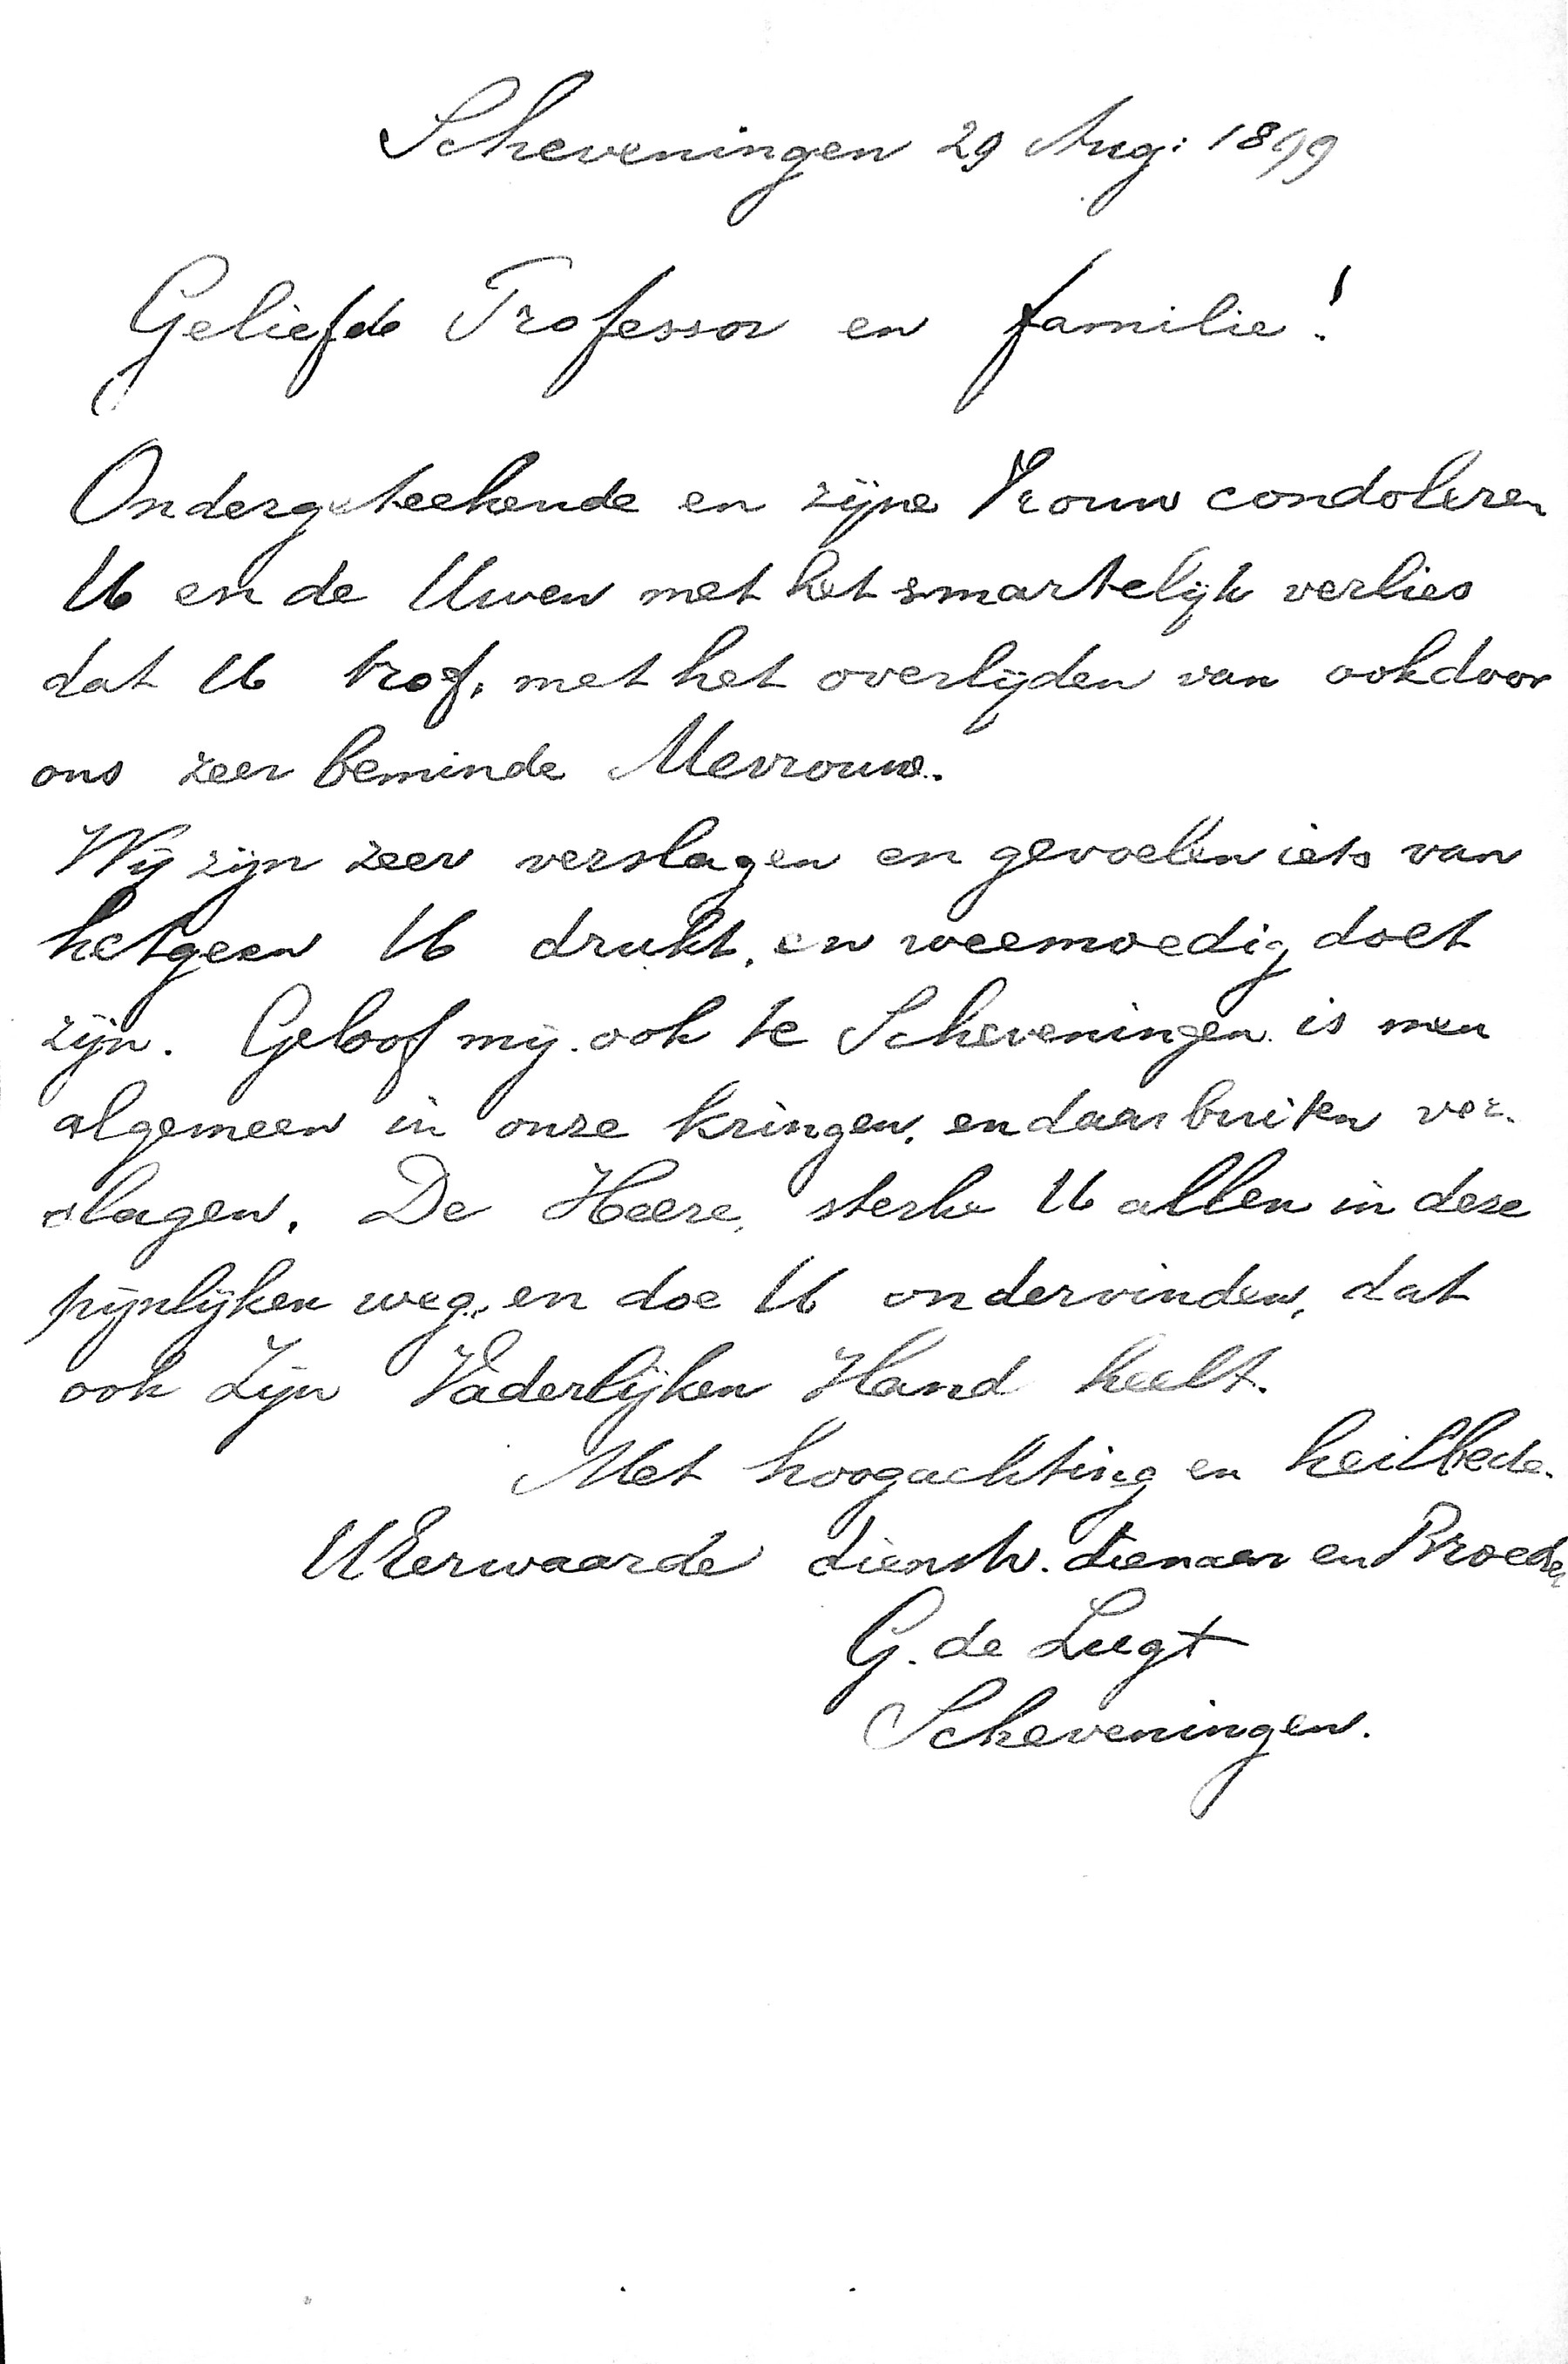 Scheveningen 29 Aug: 1899
Geliefde Professor en familie!
Ondergeteekende en zijne Vrouw condoleren
U en de Uwen met het smartelijk verlies
dat U trof, met het overlijden van ook door
ons zeer beminde Mevrouw.
Wij zijn zeer verslagen en gevoelen iets van
hetgeen U drukt, en weemoedig doet
zijn. Geloof mij ook te Scheveningen is men
algemeen in onze kringen, en daar buiten ver-
slagen. De Heere, sterke U allen in deze
pijnlijken weg, en doe U ondervinden, dat
ook Zijn Vaderlijken Hand heelt.
Met hoogachting en heilbede.
UEerwaarde dienstw. dienaar en Broeder
G. de Lugt
Scheveningen.